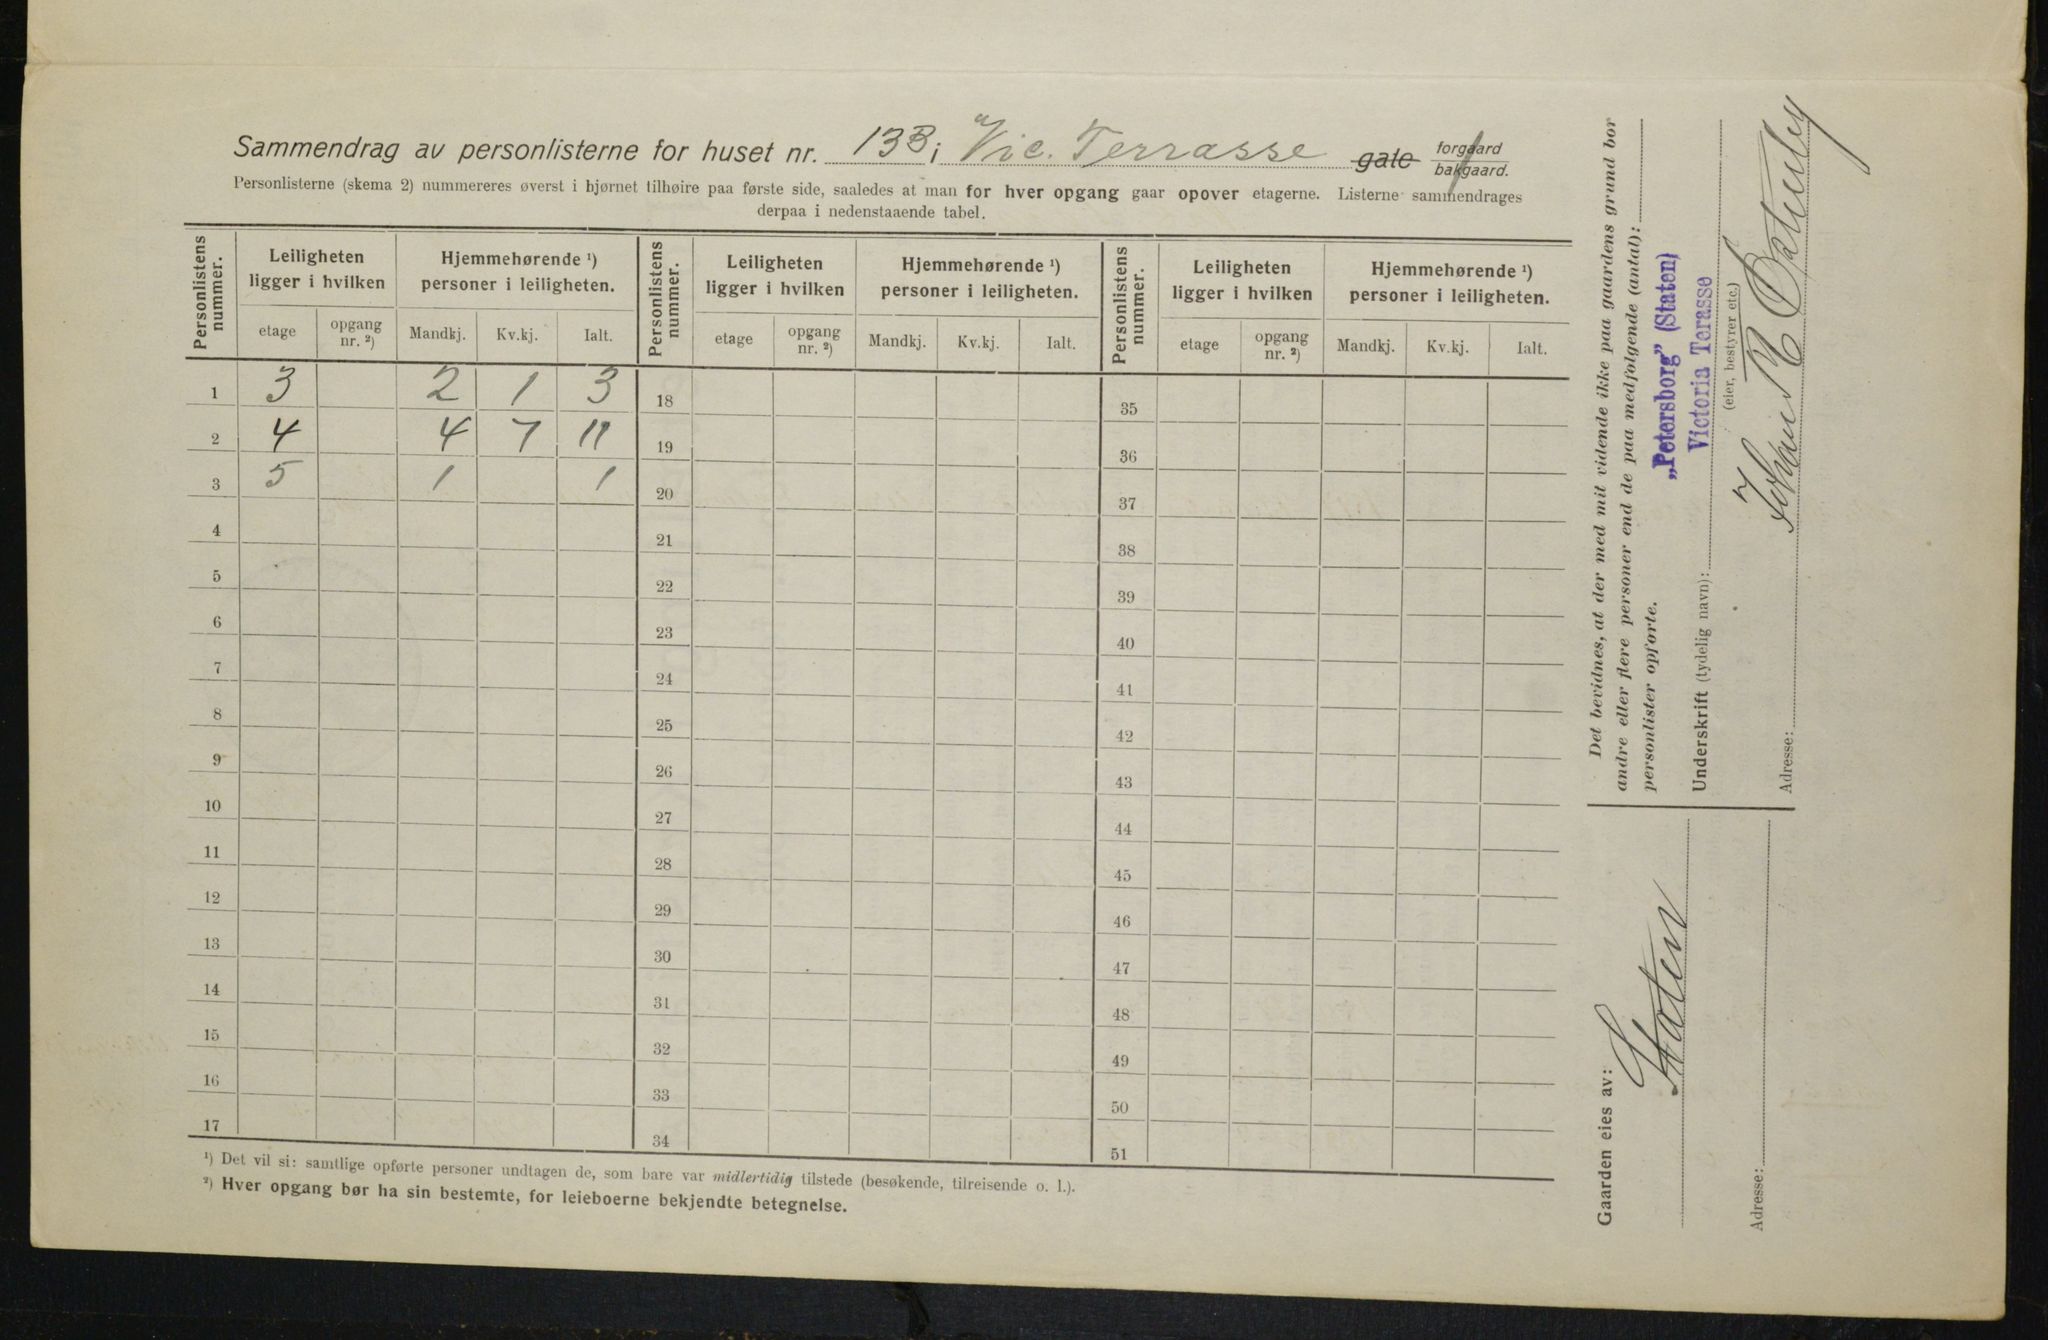 Sammendrag av personlisterne for huset nr. 13B i Vic. Terrasse gate forgaard bakgaard.
Personlisterne (skema 2) nummereres øverst i hjørnet tilhøire paa første side, saaledes at man for hver opgang gaar opover etagerne. Listerne sammendrages
derpaa i nedenstaaende tabel.
Personlistens nummer. Leiligheten ligger i hvilken Hjemmehørende ¹) personer i leiligheten. Personlistens nummer. Leiligheten ligger i hvilken Hjemmehørende ¹) personer i leiligheten. Personlistens nummer. Leiligheten ligger i hvilken Hjemmehørende ¹) personer i leiligheten.
etage opgang nr. ²) Mandkj. Kv.kj. Ialt. etage opgang nr. ²) Mandkj. Kv.kj. Ialt. etage opgang nr. ²) Mandkj. Kv.kj. Ialt.
1 3 2 1 3 18 35
2 4 4 7 11 19 36
3 5 1 1 20 37
4 21 38
5 22 39
6 23 40
7 24 41
8 25 42
9 26 43
10 27 44
11 28 45
12 29 46
13 30 47
14 31 48
15 32 49
16 33 50
17 34 51
¹) Det vil si: samtlige opførte personer undtagen de, som bare var midlertidig tilstede (besøkende, tilreisende o. l.).
²) Hver opgang bør ha sin bestemte, for leieboerne bekjendte betegnelse.
Det bevidnes, at der med mit vidende ikke paa gaardens grund bor
andre eller flere personer end de paa medfølgende (antal):
personlister opførte.
„Petersborg" (Staten)
Victoria Terasse
Underskrift (tydelig navn):
(eier, bestyrer etc.)
Adresse:
Gaarden eies av:
Staten
Adresse: